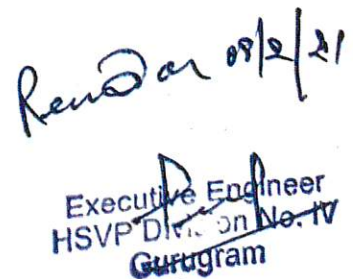 08/2/21
Executive Engineer
HSVP Division No. IV
Gurugram